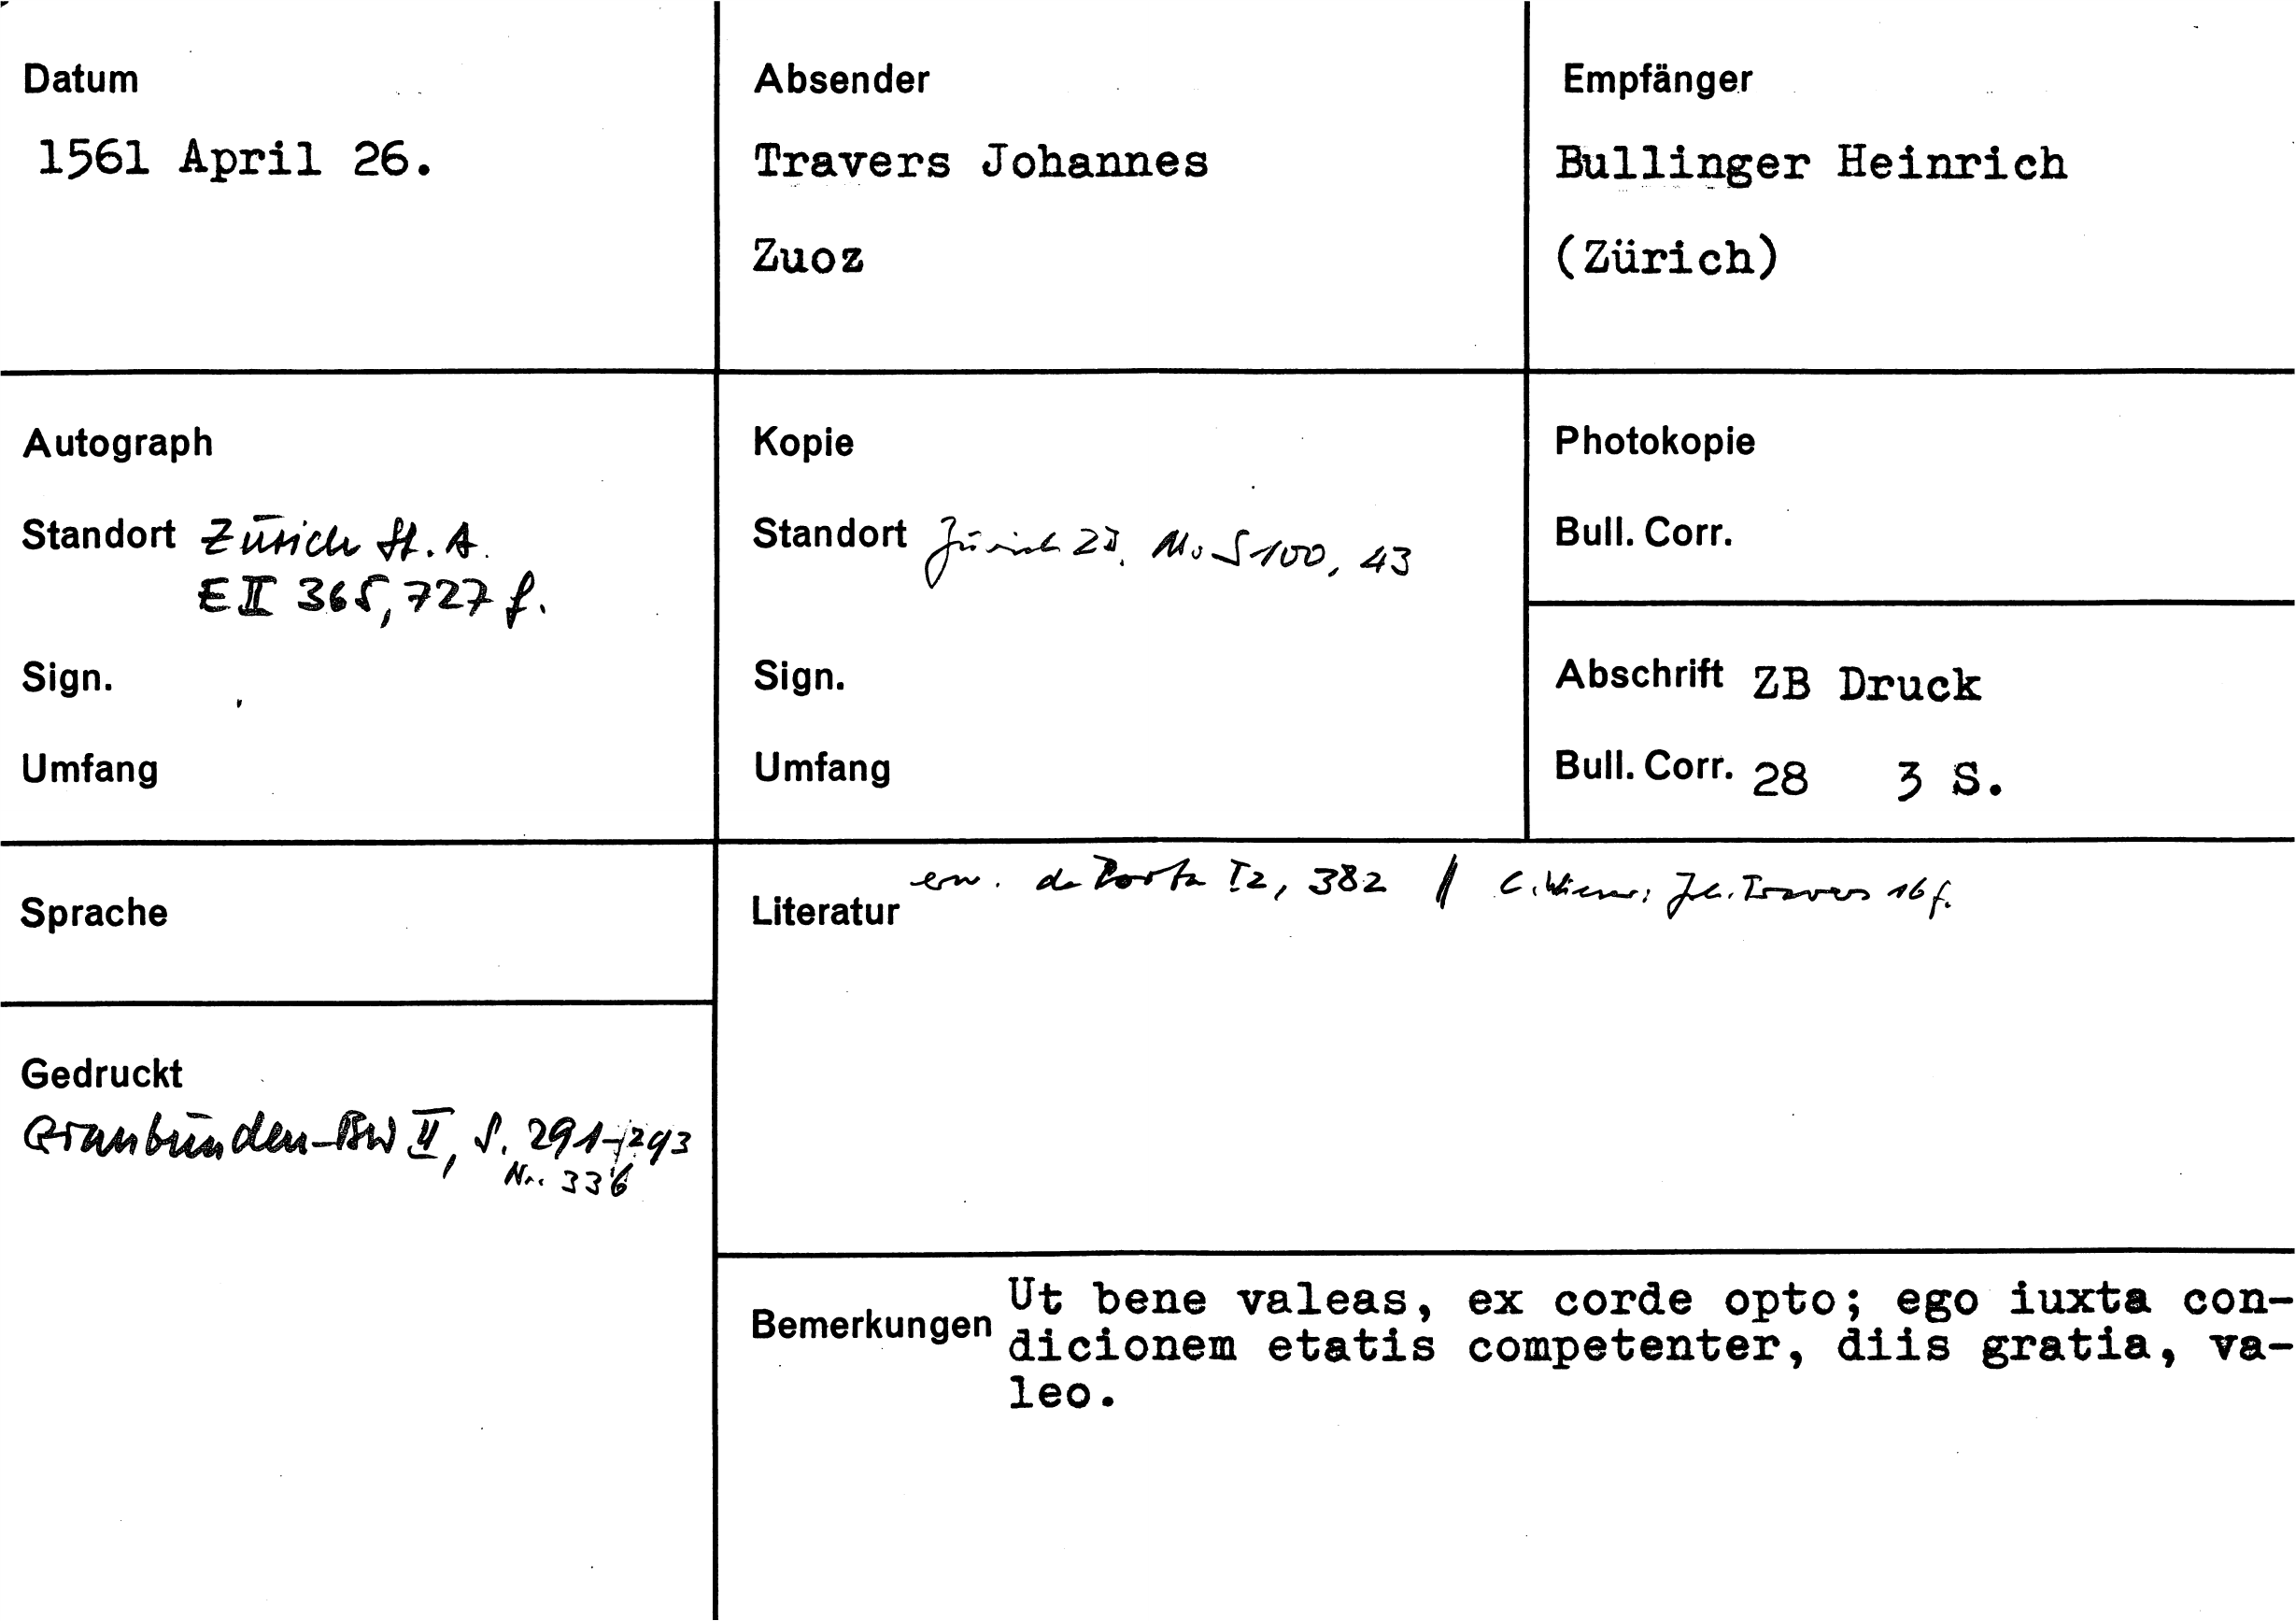 Datum
1561 April 26.
Absender
Travers Johannes
Zuoz
Empfänger
Bullinger Heinrich
(Zürich)
Autograph
Standort Zürich St.A.
E II 365, 727 f.
Sign.
Umfang
Kopie
Standort Zürich ZB, Ms S 100, 43
Sign.
Umfang
Photokopie
Bull. Corr.
Abschrift ZB Druck
Bull. Corr. 28 3 S.
Sprache
Gedruckt
Graubünden-BW II, S. 291-293
Nr. 336
Literatur erw. de Porta I2, 382 // C. Jh. Travers 16 f.
Bemerkungen Ut bene valeas, ex corde opto; ego iuxta con-
dicionem etatis competenter, diis gratia, va-
leo.